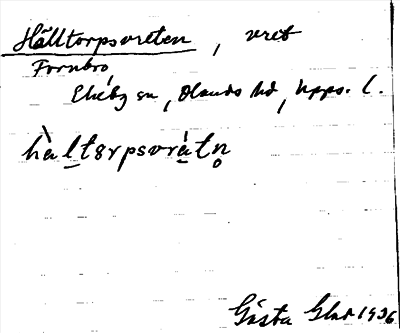 Hälltorpsvreten, vret
Fornbro
Ekeby sn, Olands hd, Upps. l.
hàltorpsvrátn̥
Gösta 1936